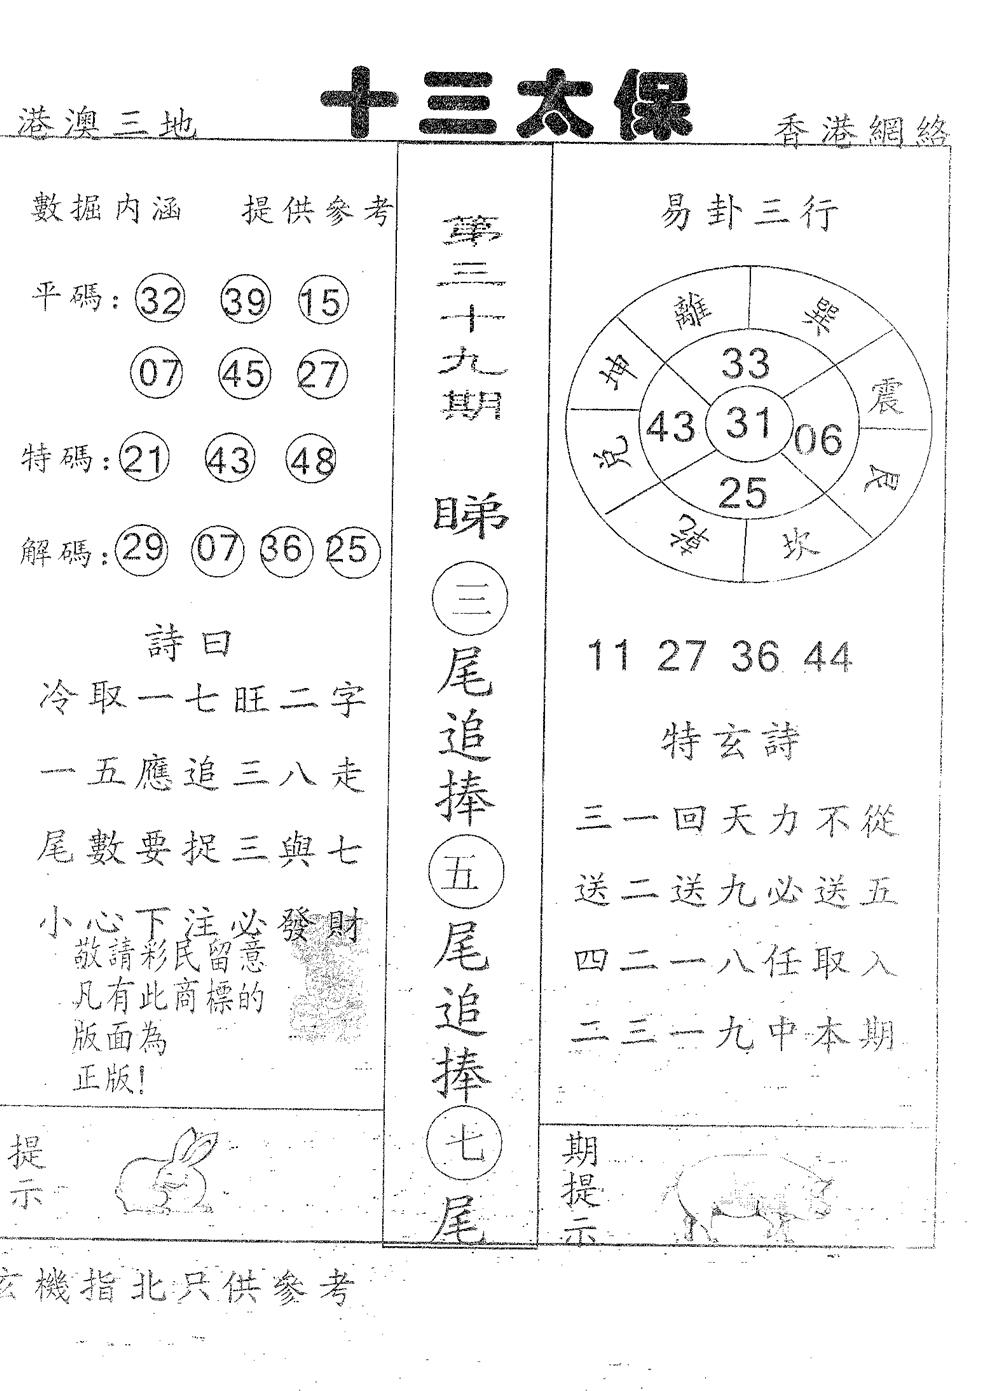 十三太保
港澳三地
香港網絡
數掘内涵 提供參考
平碼: 32 39 15
07 45 27
特碼: 21 43 48
解碼: 29 07 36 25
詩曰
冷取一七旺二字
一五應追三八走
尾數要捉三與七
小心下注必發財
敬請彩民留意
凡有此商標的
版面為
正版!
提示
第三十九期
睇三尾追捧五尾追捧七尾
易卦三行
離 巽
坤 33 震
43 31 06
兌 25 艮
乾 坎
11 27 36 44
特玄詩
三一回天力不從
送二送九必送五
四二一八任取入
二三一九中本期
期提示
玄機指北只供參考